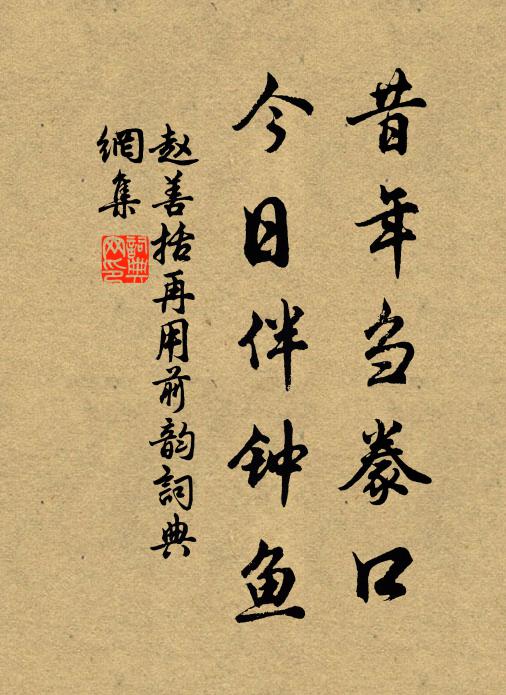 昔年刍豢口
今日伴钟鱼
赵善括再用前韵詞典
網集
詞典网印